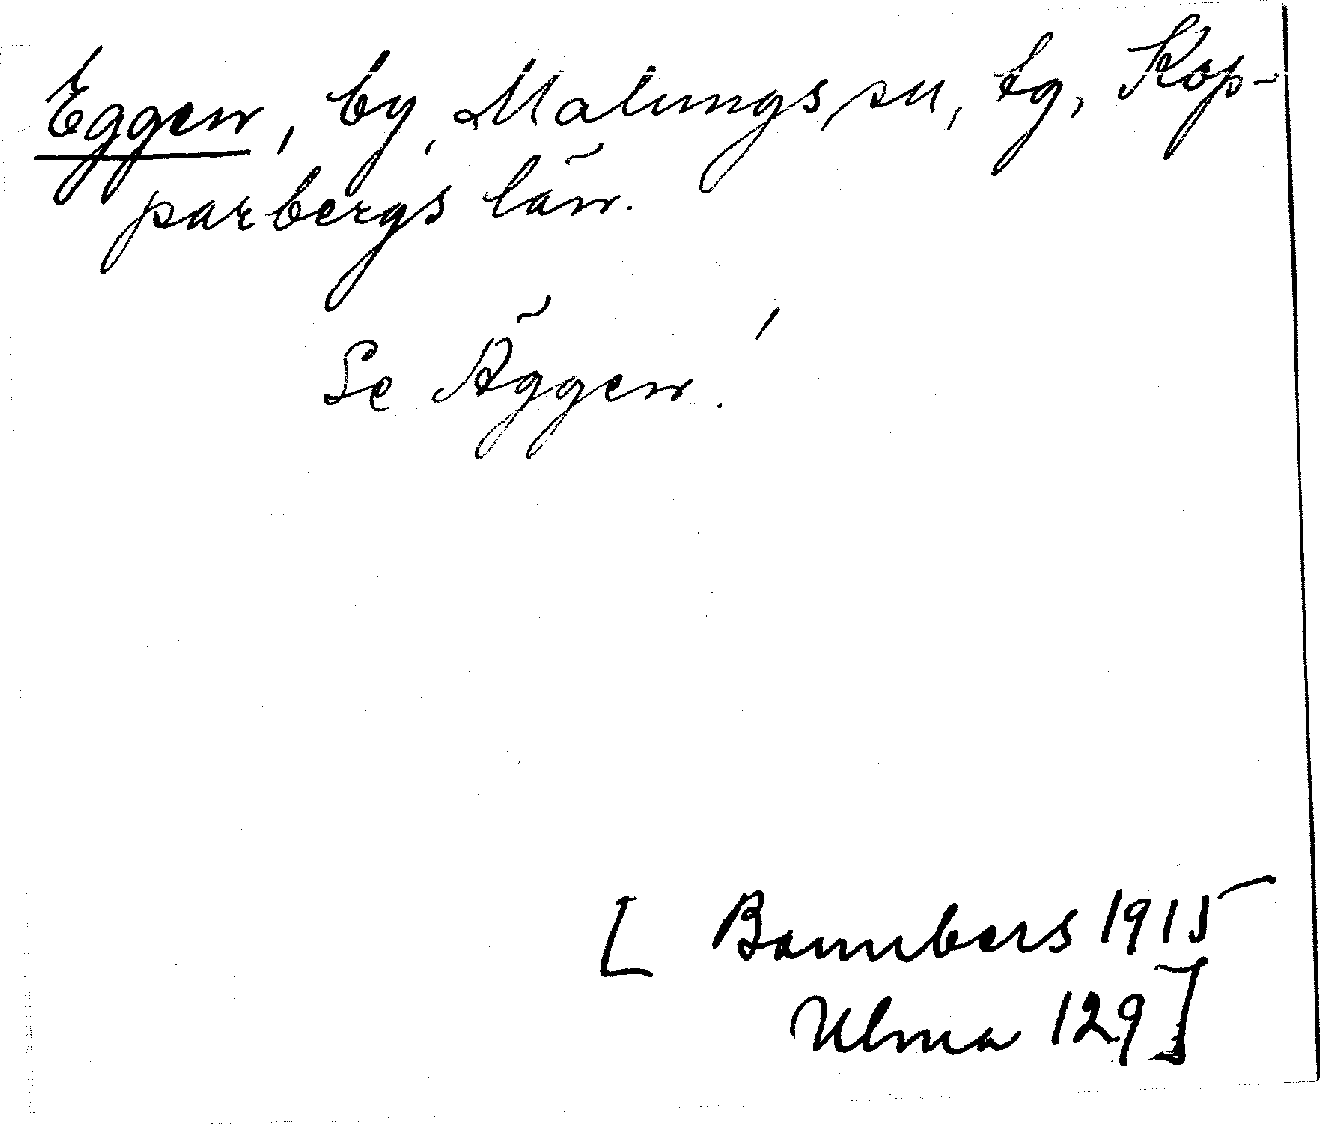 Eggen, by, Malungs sn, tg, Kop-
parbergs län.
Se Äggen!
[ Bannbers 1915
Ulma 129]